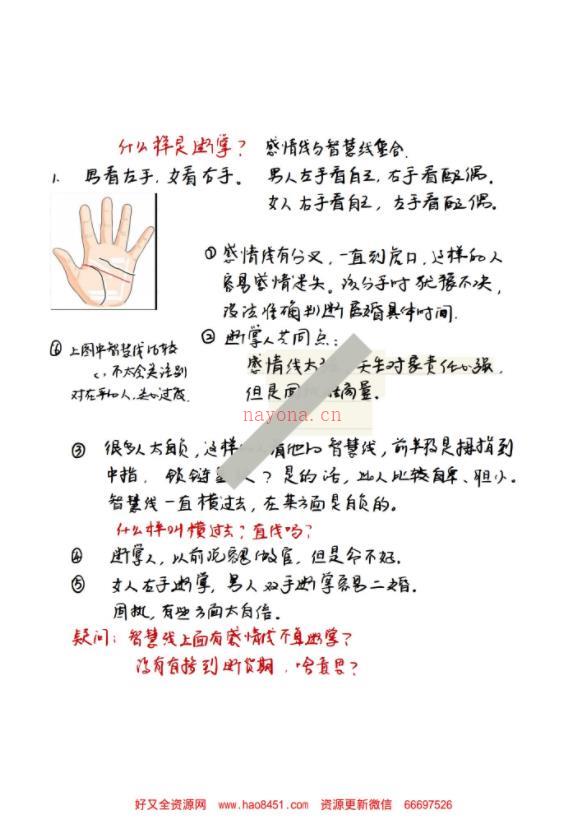 什么样是断掌？ 感情线与智慧线重合
1. 男看左手，女看右手。 男人左手看自己，右手看配偶。
女人右手看自己，左手看配偶。
① 感情线有分叉，一直到虎口，这样的人
容易感情迷失。该分手时犹豫不决，
没法准确判断 结婚具体时间.
② 断掌人共同点：
感情线太 天生对家责任心强，
但是固执 商量。
⑥ 上图中智慧线比较
不太会关注别
对左手的人，
③ 很多人太自负，这样 看他的智慧线，前半段是拇指到
中指， 锁链 ？是的话，此人比较自卑、胆小。
智慧线一直横过去，在某方面是自负的。
什么样叫横过去？直线吗？
nayona.cn
④ 断掌人，以前说容易做官，但是命不好.
⑤ 女人左手断掌，男人双手断掌容易二婚.
固执，有些方面太自信.
疑问：智慧线上面有感情线不算断掌？
没有直接到断 期，啥意思？
好又全资源网 www.hao8451.com 资源更新微信 66697526